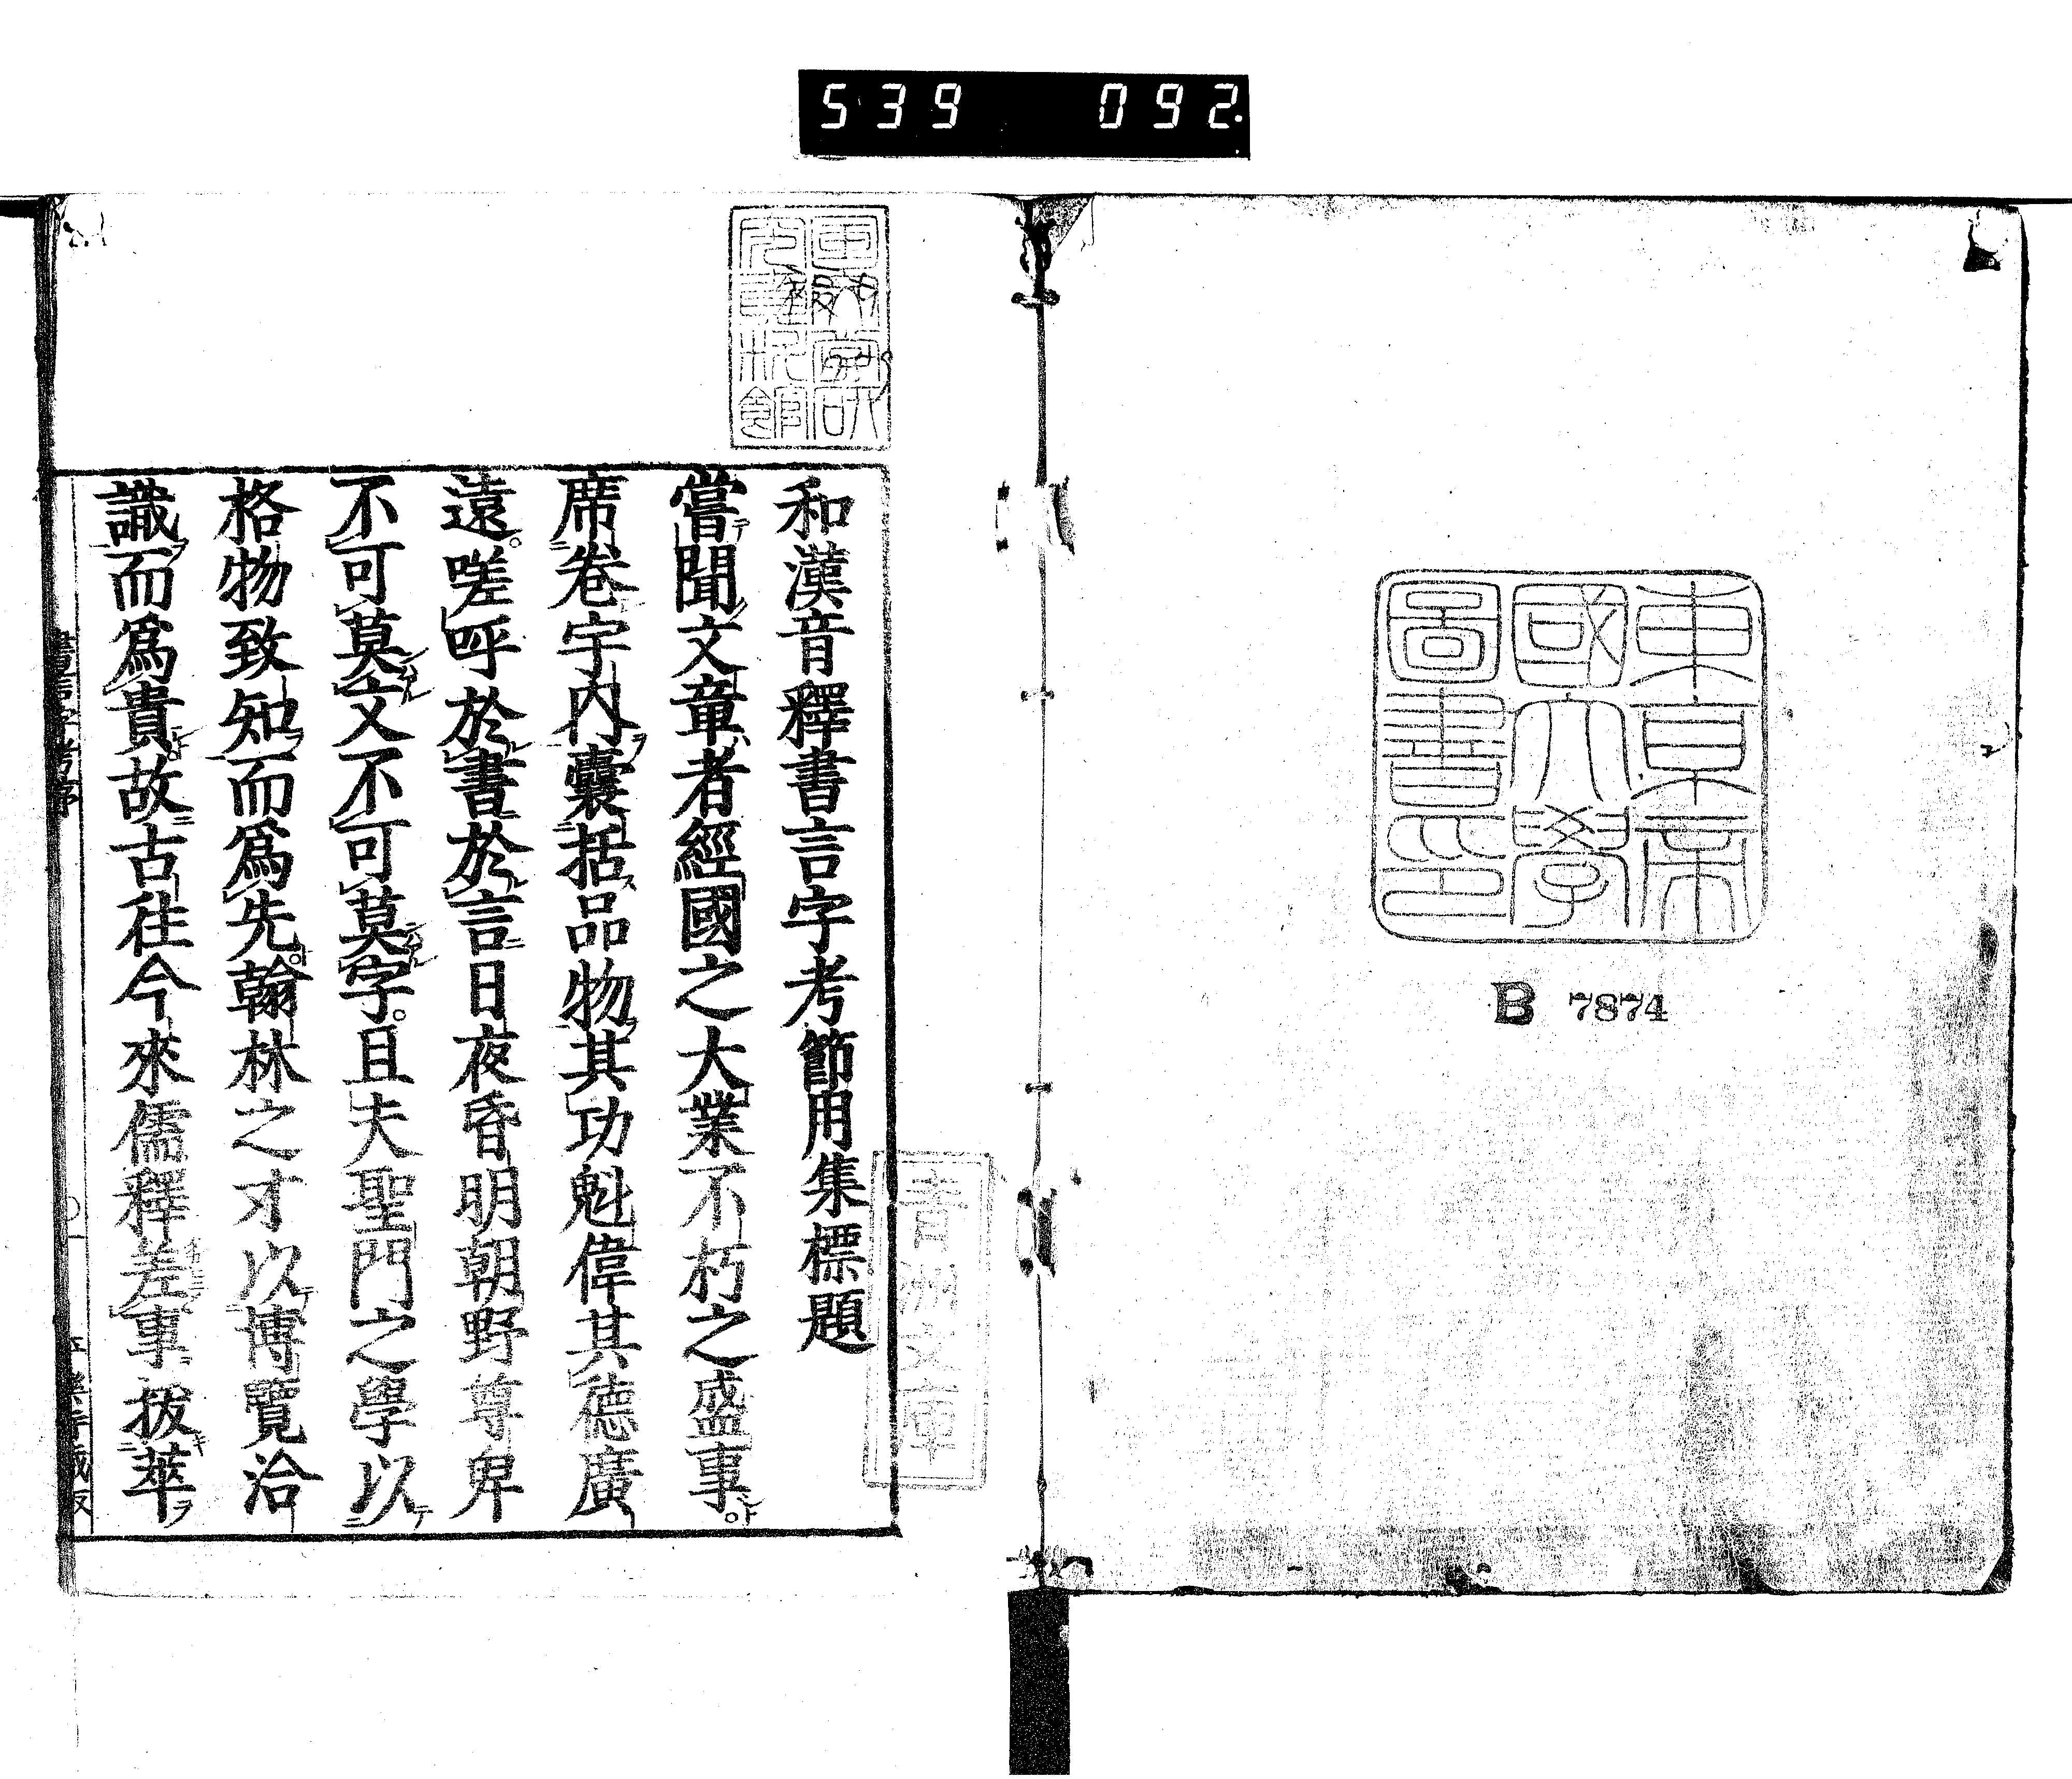 539 092
東京帝
國大學
圖書印
B 7874
青洲文庫
和漢音釋書言字考節用集標題
嘗聞文章者經國之大業不朽之盛事
席卷宇内囊括品物其功魁偉其德廣
遠嗟呼於書於言日夜昏明朝野尊卑
不可莫文不可莫字且夫聖門之學以
格物致知而爲先翰林之才以博覽洽
識而爲貴故古往今來儒釋差事拔萃